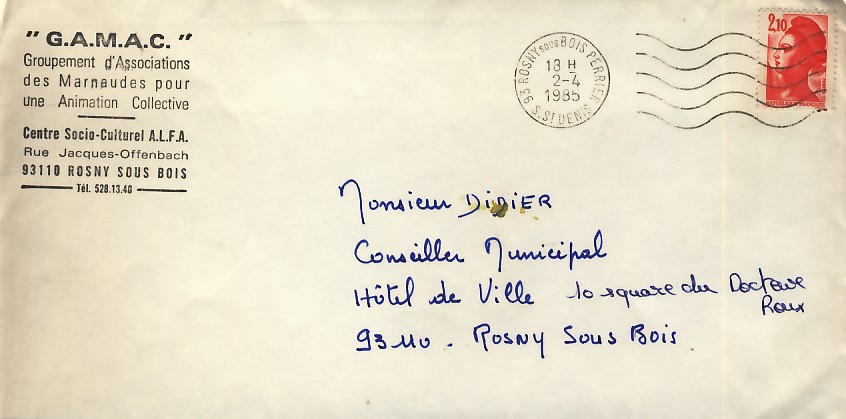 " G.A.M.A.C. "
Groupement d'Associations
des Marnaudes pour
une Animation Collective
Centre Socio-Culturel A.L.F.A.
Rue Jacques-Offenbach
93110 ROSNY SOUS BOIS
Tél. 528.13.40
93 ROSNY sous BOIS PERRIER
18 H
2-4
1985
S. ST DENIS
2,10
REPUBLIQUE FRANÇAISE
Monsieur DIDIER
Conseiller Municipal
Hôtel de Ville 10 square du Docteur
Roux
93110. ROSNY SOUS BOIS